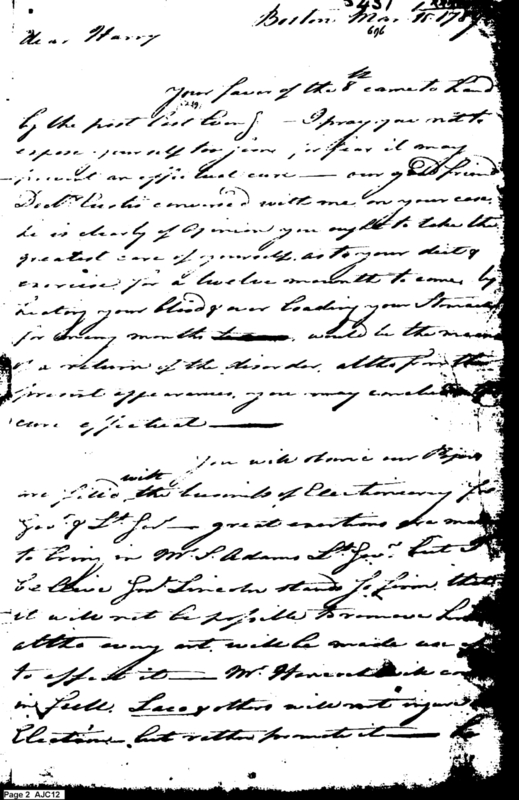 Boston Mar 15 1789
Dear Harry
Your favor of the 8th came to hand
by the post last Eveng — I pray you not to
expose yourself too soon, for fear it may
prevent an effectual cure — our good friend
Doctr. Eustis convers'd with me on your case,
he is clearly of Opinion you ought to take the
greatest care of yourself, as to your diet &
exercise for a twelve mounth to come, by
heating your blood & over loading your Stomach
for many months would be the means
of a return of the disorder, altho from the
present appearances, you may conclude
cure effectual
You will observe our Papers
with
are filled the business of Electioneering for
Govr. & Lt. Govr — great exertions are made
to bring in Mr. S. Adams Lt. Govr. but I
believe Genl. Lincoln stands so firm that
it will not be possible to remove him
altho every art will be made use of
to effect it — Mr. Hancock will come
in full. Laco & others will not injure
Election, but rather promote it — he
Page 2 AJC12